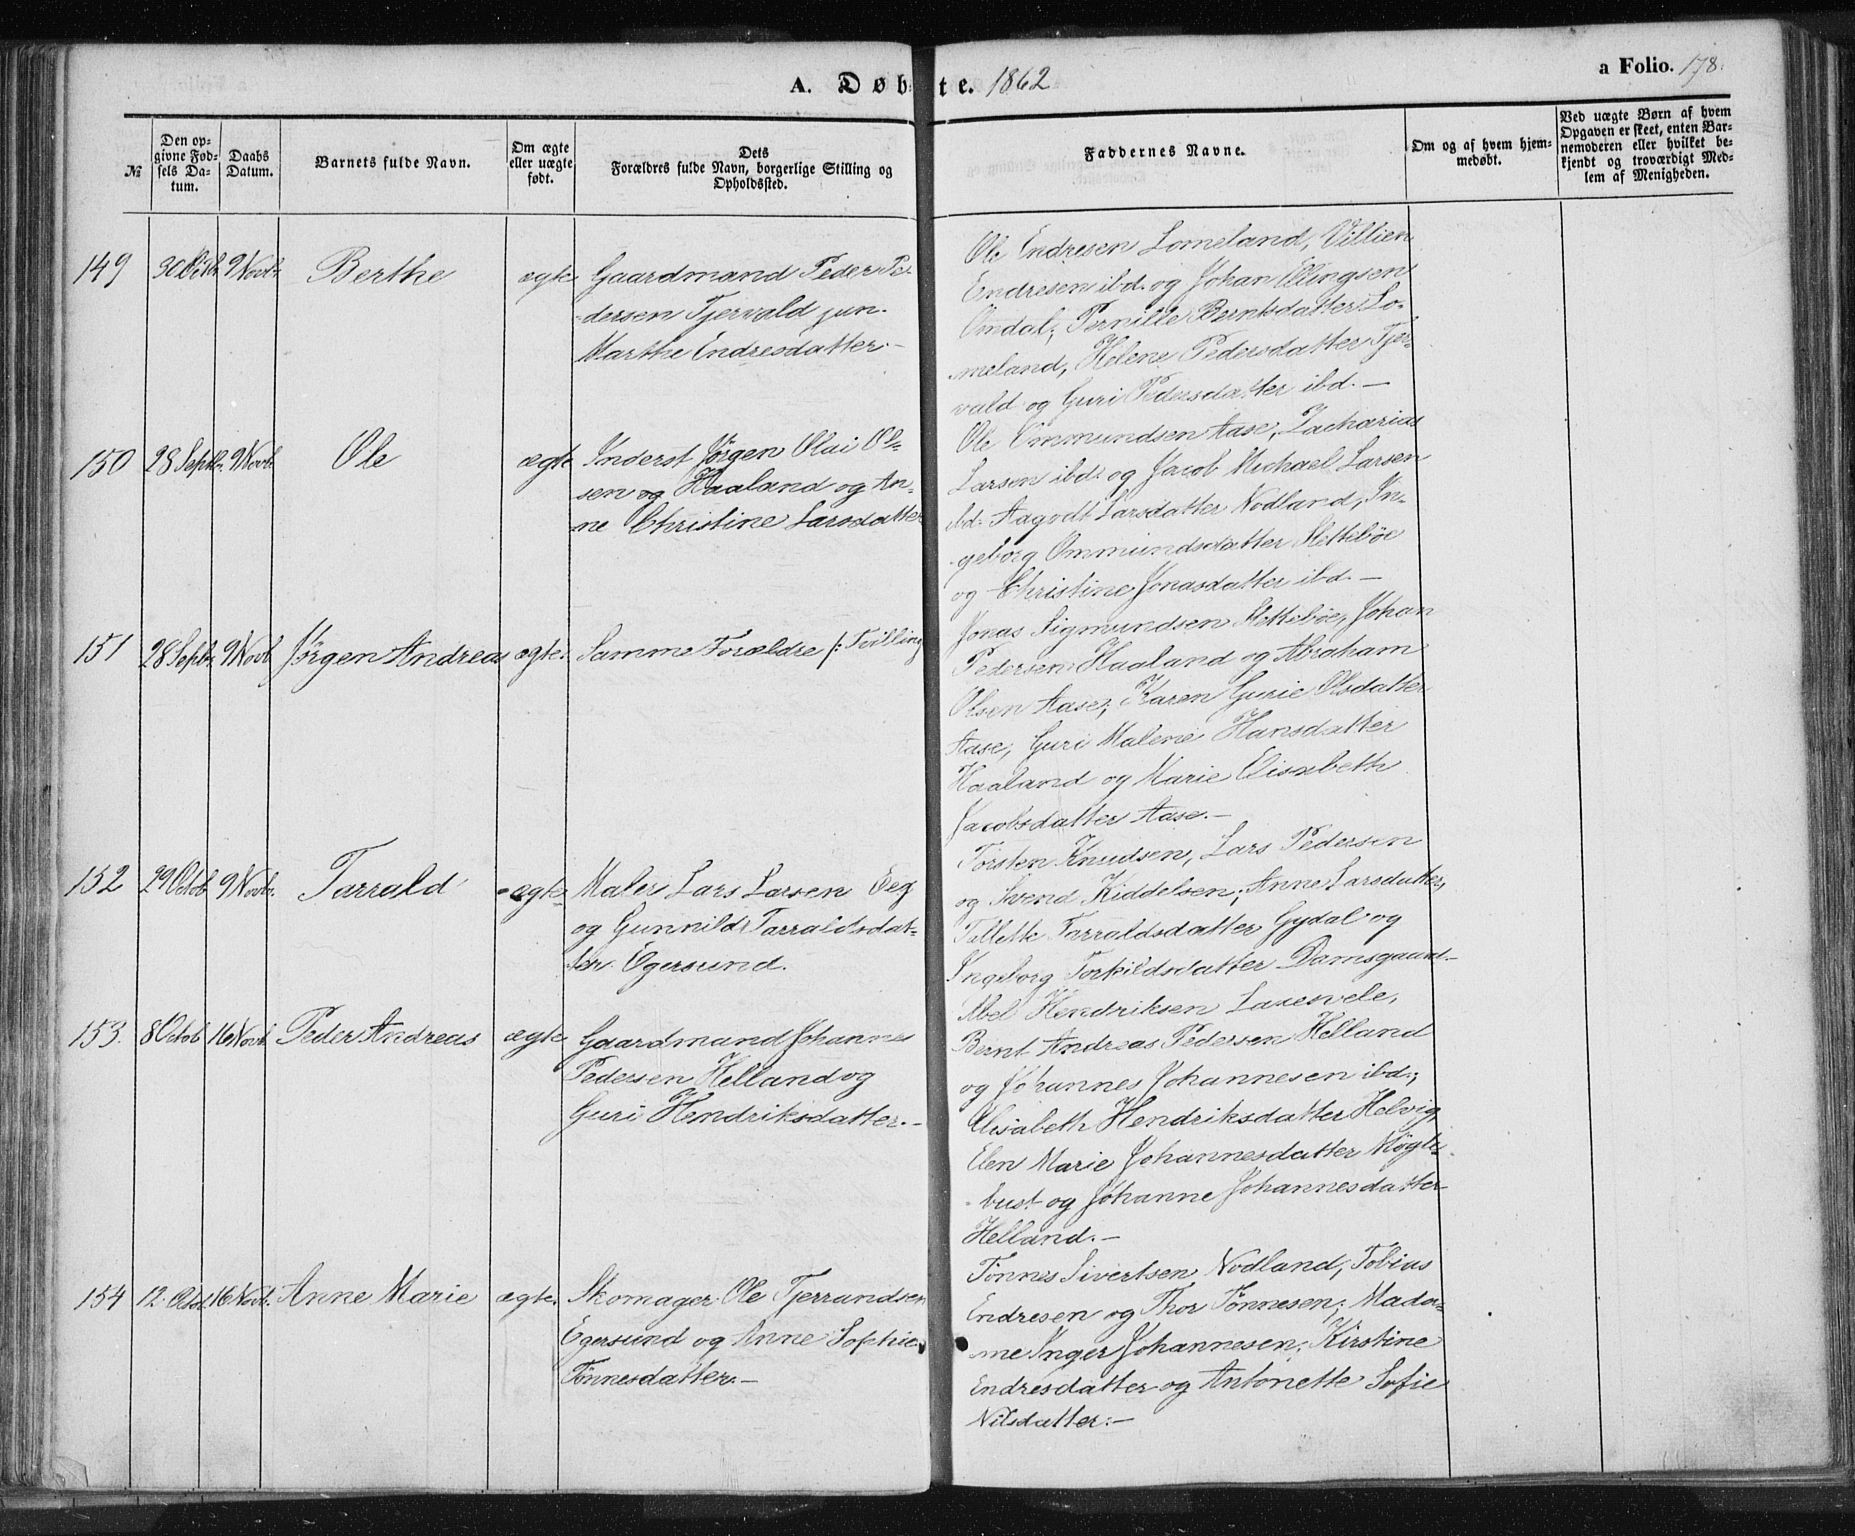 A. Døbte. 1862
a Folio. 178.
№
Den opgivne Fødsels Datum.
Daabs Datum.
Barnets fulde Navn.
Om ægte eller uægte født.
Dets Forældres fulde Navn, borgerlige Stilling og Opholdssted.
Faddernes Navne.
Om og af hvem hjemmedøbt.
Ved uægte Børn af hvem Opgaven er skeet, enten Barnemoderen eller hvilket bekjendt og troværdigt Medlem af Menigheden.
149 30 Octb. 9 Novb. Berthe ægte
Gaardmand Peder Pe-
dersen Tjervald jun.
Marthe Endresdatter.-
Ole Endresen Lomeland, Villien
Endresen ibd. og Johan Ellingsen
Omdal; Pernille Berntsdatter Lo-
meland, Helene Pedersdatter Tjer-
vald og Guri Pedersdatter ibd.—
150 28 Septbr. 9 Novb. Ole ægte
Inderst Jørgen Olai Ol-
sen og Haaland og An-
ne Christine Larsdatter
Ole Ommundsen Aase, Zacharias
Larsen ibd. og Jacob Michael Larsen
ibd. Aagodt Larsdatter Nodland, In-
geborg Ommundsdatter Slettebøe
og Christine Jonasdatter ibd.—
151 28 Septbr. 9 Novb. Jørgen Andreas ægte.
Samme Forældre /: Tvilling
Jonas Sigmundsen Slettebøe, Johan
Pedersen Haaland og Abraham
Olsen Aase; Karen Gurie Olsdatter
Aase, Guri Malene Hansdatter
Haaland og Marie Elisabeth
Jacobsdatter Aase.—
152 29 Octob 9 Novb. Tarrald ægte
Maler Lars Larsen Eeg
og Gunnild Tarraldsdat-
ter. Egersund.
Torsten Knudsen, Lars Pedersen
og Svend Kiddelsen; Anne Larsdatter,
Tallette Tarraldsdatter Gydal og
Ingeborg Torkildsdatter Damsgaard.—
153. 8 Octob 16 Novb. Peder Andreas ægte
Gaardmand Johannes
Pedersen Helland og
Guri Hendriksdatter.—
Abel Hendriksen Laxesvele,
Bernt Andreas Pedersen Helland
og Johannes Johannesen ibd.;
Elisabeth Hendriksdatter Helvig,
Elen Marie Johannesdatter Møgle-
bust og Johanne Johannesdatter
Helland.—
154 12. Octob. 16 Novb. Anne Marie ægte.
Skomager Ole Tjerrandsen
Egersund og Anne Sophie
Tønnesdatter.—
Tønnes Sivertsen Nodland, Tobias
Endresen og Thor Tønnesen; Mada-
me Inger Johannesen, Kirstine
Endresdatter og Antonette Sofie
Nilsdatter.—